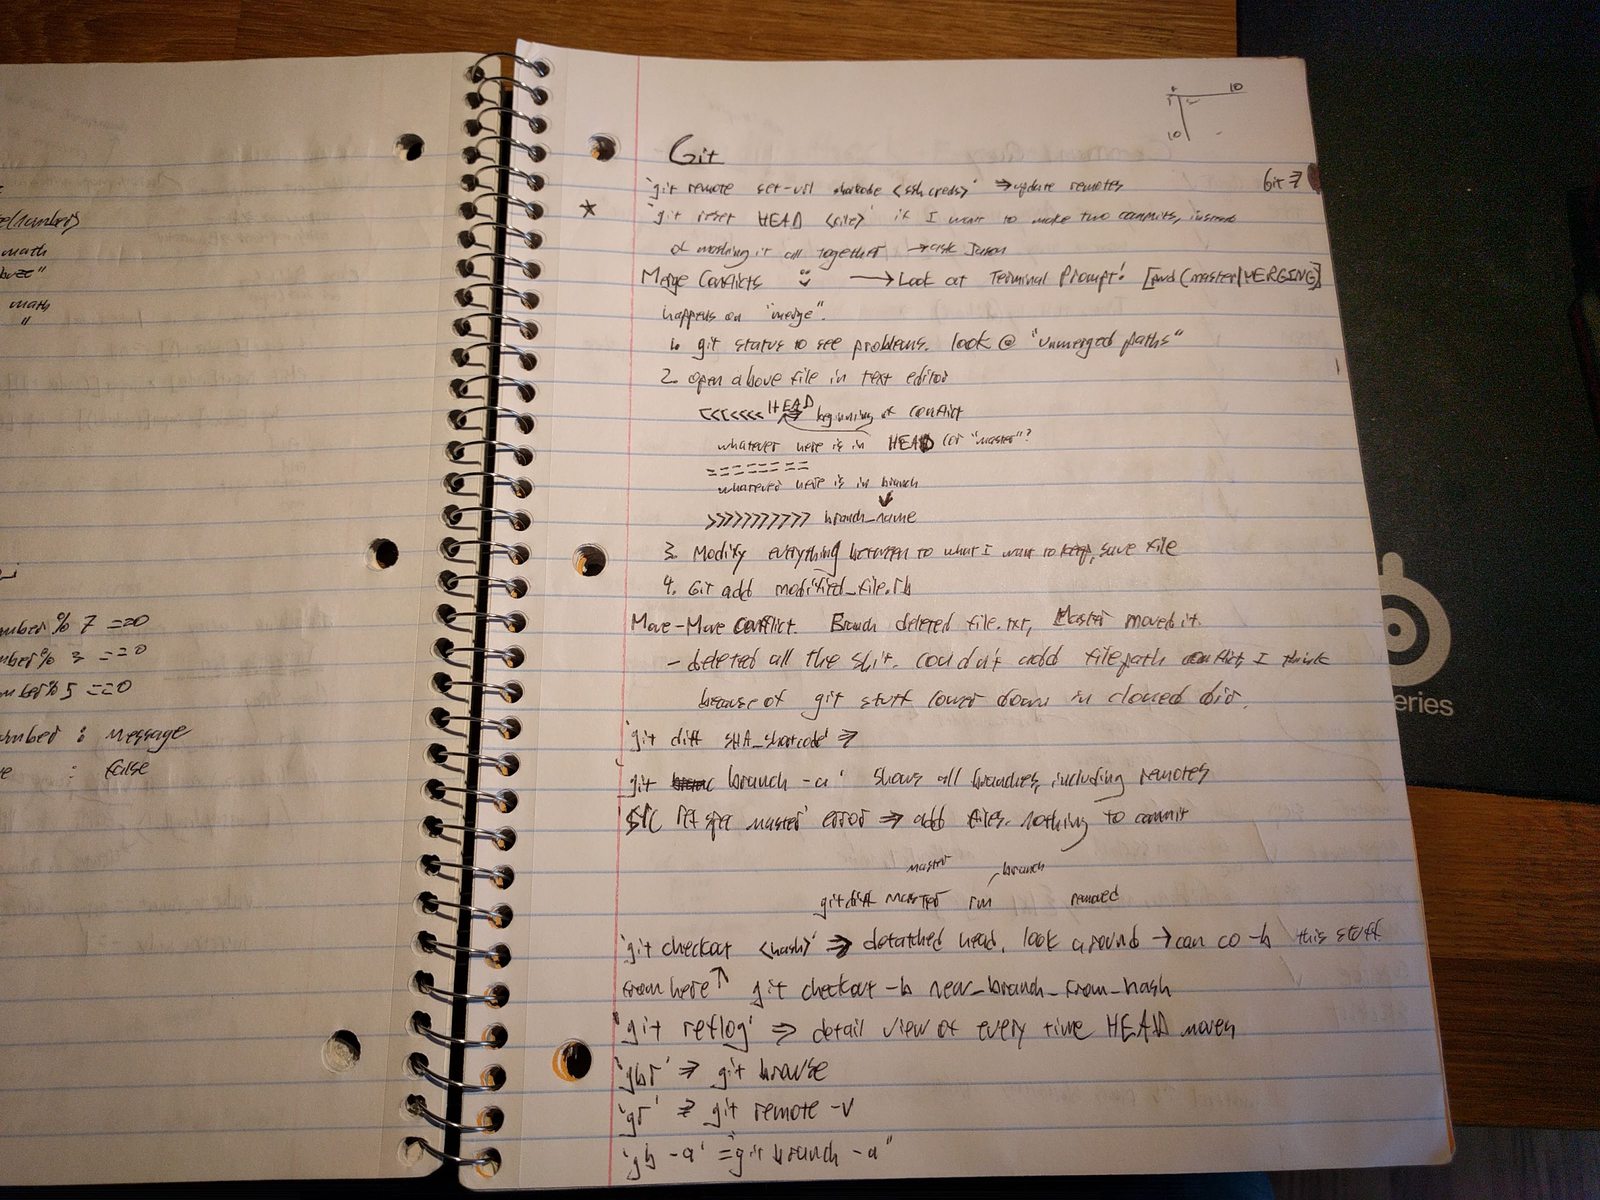 te(number)
math
buzz"
math
"
number % 7 ==0
number % 3 ==0
number % 5 ==0
number : message
: false
10
10
Git
'git remote set-url <ssh creds>' => update remotes
Git
* 'git reset HEAD <file>' if I want to make two commits, instead
of mashing it all together → ask Jason
Merge Conflicts :) → Look at Terminal Prompt! [pwd (master|MERGING)]
happens on "merge".
1. git status to see problems. look @ "unmerged paths"
2. open above file in text editor
<<<<<<< HEAD beginning of conflict
whatever here is in HEAD (or "master"?
=======
whatever here is in branch
>>>>>>>>>>> branch_name
3. Modify everything between to what I want to keep, save file
4. Git add modified_file.rb
Move-Move Conflict. Branch deleted file.txt, Master moved it.
- deleted all the shit. couldn't add filepath conflict I think
because of git stuff lower down in cloned dir.
'git diff SHA_shortcode' =>
'git branch -a' shows all branches, including remotes
src ref spec master error => add files. nothing to commit
master branch
git diff master rm removed
'git checkout <hash>' => detatched head. look around → can co -b this stuff
from here ↑ git checkout -b new_branch_from_hash
'git reflog' => detail view of every time HEAD moves
'gbr' => git browse
'gr' => git remote -v
'gb -a' = "git branch -a"
eries